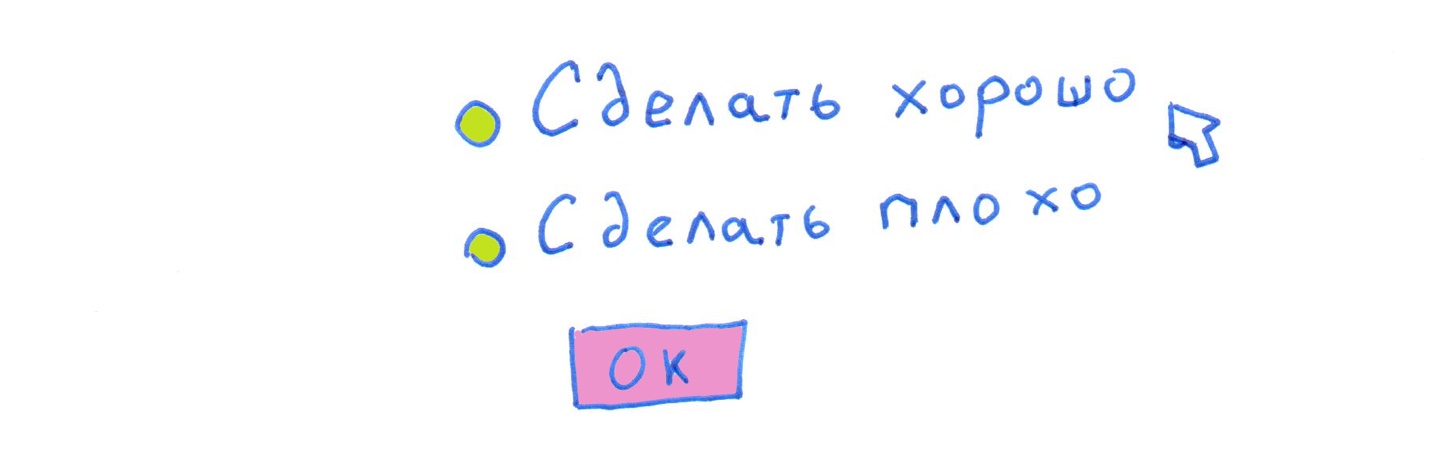 Сделать хорошо
Сделать плохо
ОК